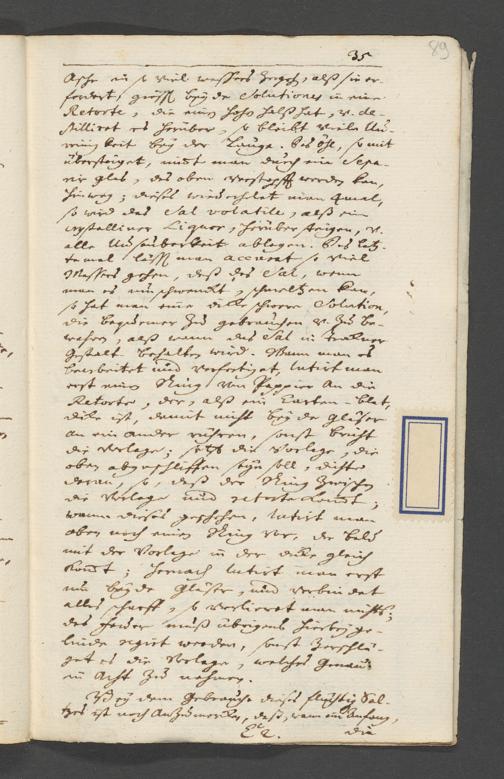 35
89
Asche in so viel wassers zergeh, alß sie er-
fordert, gießt beyde Solutiones in eine
Retorte, die einen hohe halß hat, v. de-
stilliret es herüber, so bleibt viele Un-
reinigkeit bey der Lauge. Das öhl, so mit
übersteiget, nimt man durch ein Sepa-
rir glas, das oben verstopfft werden kan,
hinweg; dieses wiederholet man 4 mal,
so wird das Sal volatile, alß ein
crystalliner Liquor, herüber steigen, v.
alle Unsauberkeit ablegen. Das letz-
te mal läßt man accurat so viel
Wassers gehen, daß das Sal, wenn
man es umschwenckt, schmeltzen kan,
so hat man eine dicke schwere Solution,
die bequemer zu gebrauchen v. zu be-
wahren, alß wann das Sal in trockner
gestalt behalten wird. Wann man es
bearbeitet und verfertiget, lutirt man
erst einen Ring von Pappier an die
Retorte, der, alß ein Carten-blat,
dick ist, damit nicht beyde gläser
an ein ander rühren, sonst bricht
die Vorlage; setzt die Vorlage, die
oben abgeschliffen seyn soll, dichte
daran, so, daß der Ring zwischen
die Vorlage und retorte kommt;
wann dieses geschehen, lutirt man
oben noch einen Ring vor, der bald
mit der Vorlage in der dicke gleich
kommt; hernach lutirt man erst
nun beyde Gläser, und verbindet
alles scharff, so verlieret man nichts;
das feuer muß übrigens hierbey ge-
linde regirt werden, sonst zerschlä-
get es die Vorlage, welches genau
in Acht zu nehmen.
Bey dem Gebrauche dieses flüchtig Sal-
tzes ist noch anzumercken, daß, wann im Anfang,
E 2. die